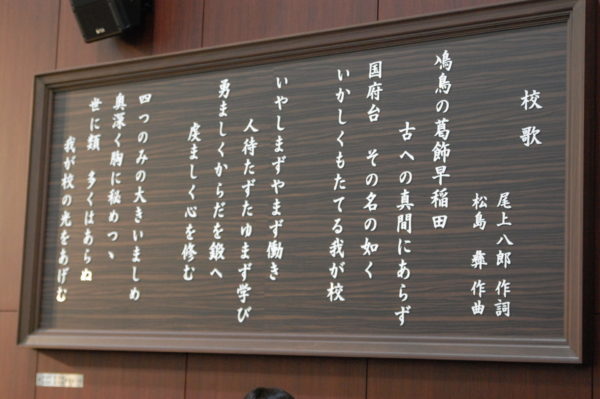 校歌
尾上八郎 作詞
松島 彜 作曲
鳰鳥の葛飾早稲田
古への真間にあらず
国府台 その名の如く
いかしくもたてる我が校
いやしまずやまず働き
人待たずたゆまず学び
勇ましくからだを鍛へ
虔ましく心を修む
四つのみの大きいましめ
奥深く胸に秘めつゝ
世に類 多くはあらぬ
我が校の光をあげむ